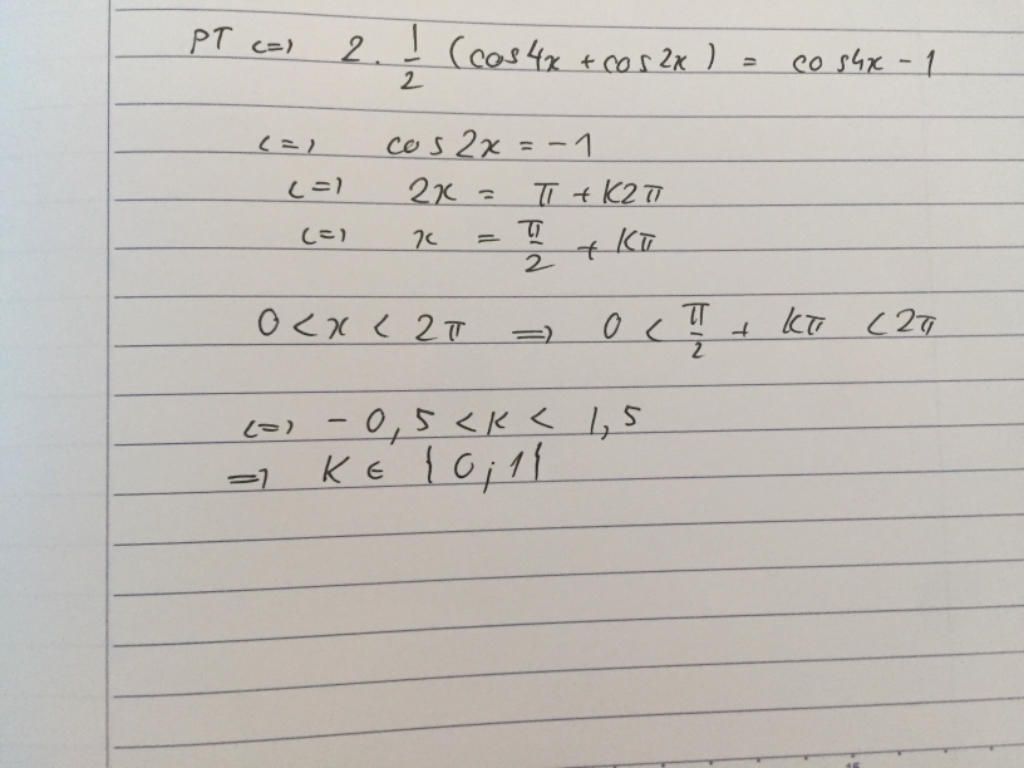 PT <=> 2 . 1/2 (cos4x + cos2x) = cos4x - 1
<=> cos2x = -1
<=> 2x = π + K2π
<=> x = π/2 + Kπ
0 < x < 2π => 0 < π/2 + kπ < 2π
<=> -0,5 < k < 1,5
=> K ∈ {0;1}
15